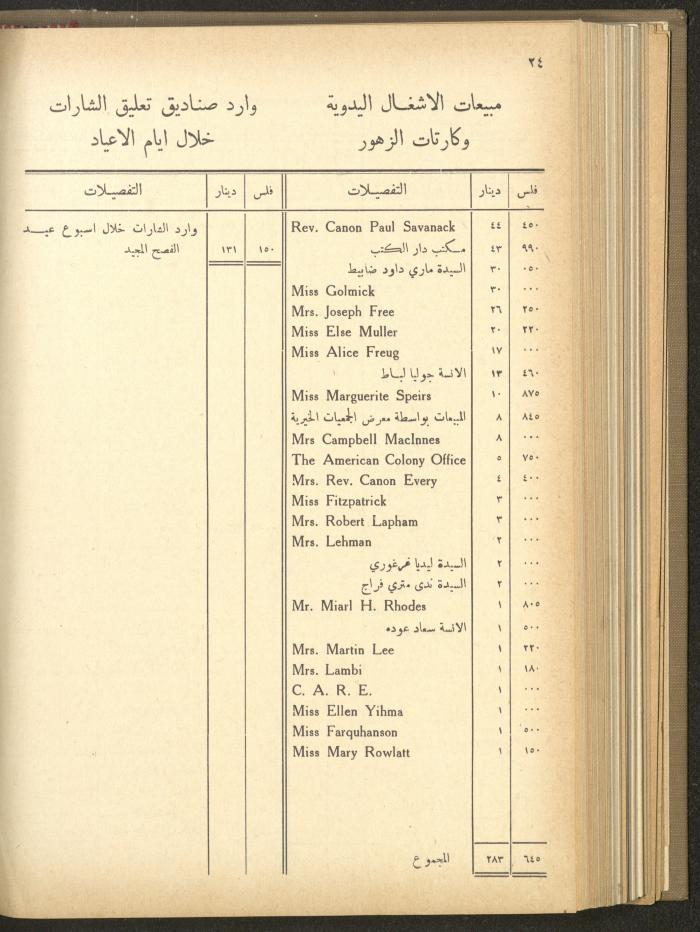 ٢٤
مبيعات الاشغال اليدوية
وكارتات الزهور
وارد صناديق تعليق الشارات
خلال ايام الاعياد
فلس دينار التفصيلات
٤٥٠ ٤٤ Rev. Canon Paul Savanack
٩٩٠ ٤٣ مكتب دار الكتب
٠٥٠ ٣٠ السيدة ماري داود ضابيط
٠٠٠ ٣٠ Miss Golmick
٢٥٠ ٢٦ Mrs. Joseph Free
٢٢٠ ٢٠ Miss Else Muller
٠٠٠ ١٧ Miss Alice Freug
٤٦٠ ١٣ الانسة جوليا لباط
٨٧٥ ١٠ Miss Marguerite Speirs
٨٤٥ ٨ المبيعات بواسطة معرض الجمعيات الخيرية
٠٠٠ ٨ Mrs Campbell MacInnes
٧٥٠ ٥ The American Colony Office
٤٠٠ ٤ Mrs. Rev. Canon Every
٠٠٠ ٣ Miss Fitzpatrick
٠٠٠ ٣ Mrs. Robert Lapham
٠٠٠ ٢ Mrs. Lehman
٠٠٠ ٢ السيدة ليديا غرغوري
٠٠٠ ٢ السيدة ندى متري فراج
٨٠٥ ١ Mr. Miarl H. Rhodes
٥٠٠ ١ الانسة سعاد عوده
٢٢٠ ١ Mrs. Martin Lee
١٨٠ ١ Mrs. Lambi
٠٠٠ ١ C. A. R. E.
٠٠٠ ١ Miss Ellen Yihma
٥٠٠ ١ Miss Farquhanson
١٥٠ ١ Miss Mary Rowlatt
٦٤٥ ٢٨٣ المجموع
فلس دينار التفصيلات
وارد الشارات خلال اسبوع عيد
١٥٠ ١٣١ الفصح المجيد